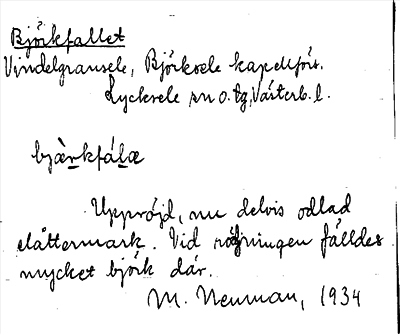 Björkfallet
Vindelgransele, Björksele kapellförs.
Lycksele sn o. tg, Västerb. l.
bjæ̀rkfálæ
Uppröjd, nu delvis odlad
slåttermark. Vid röjningen fälldes
mycket björk där.
M. Neuman, 1934